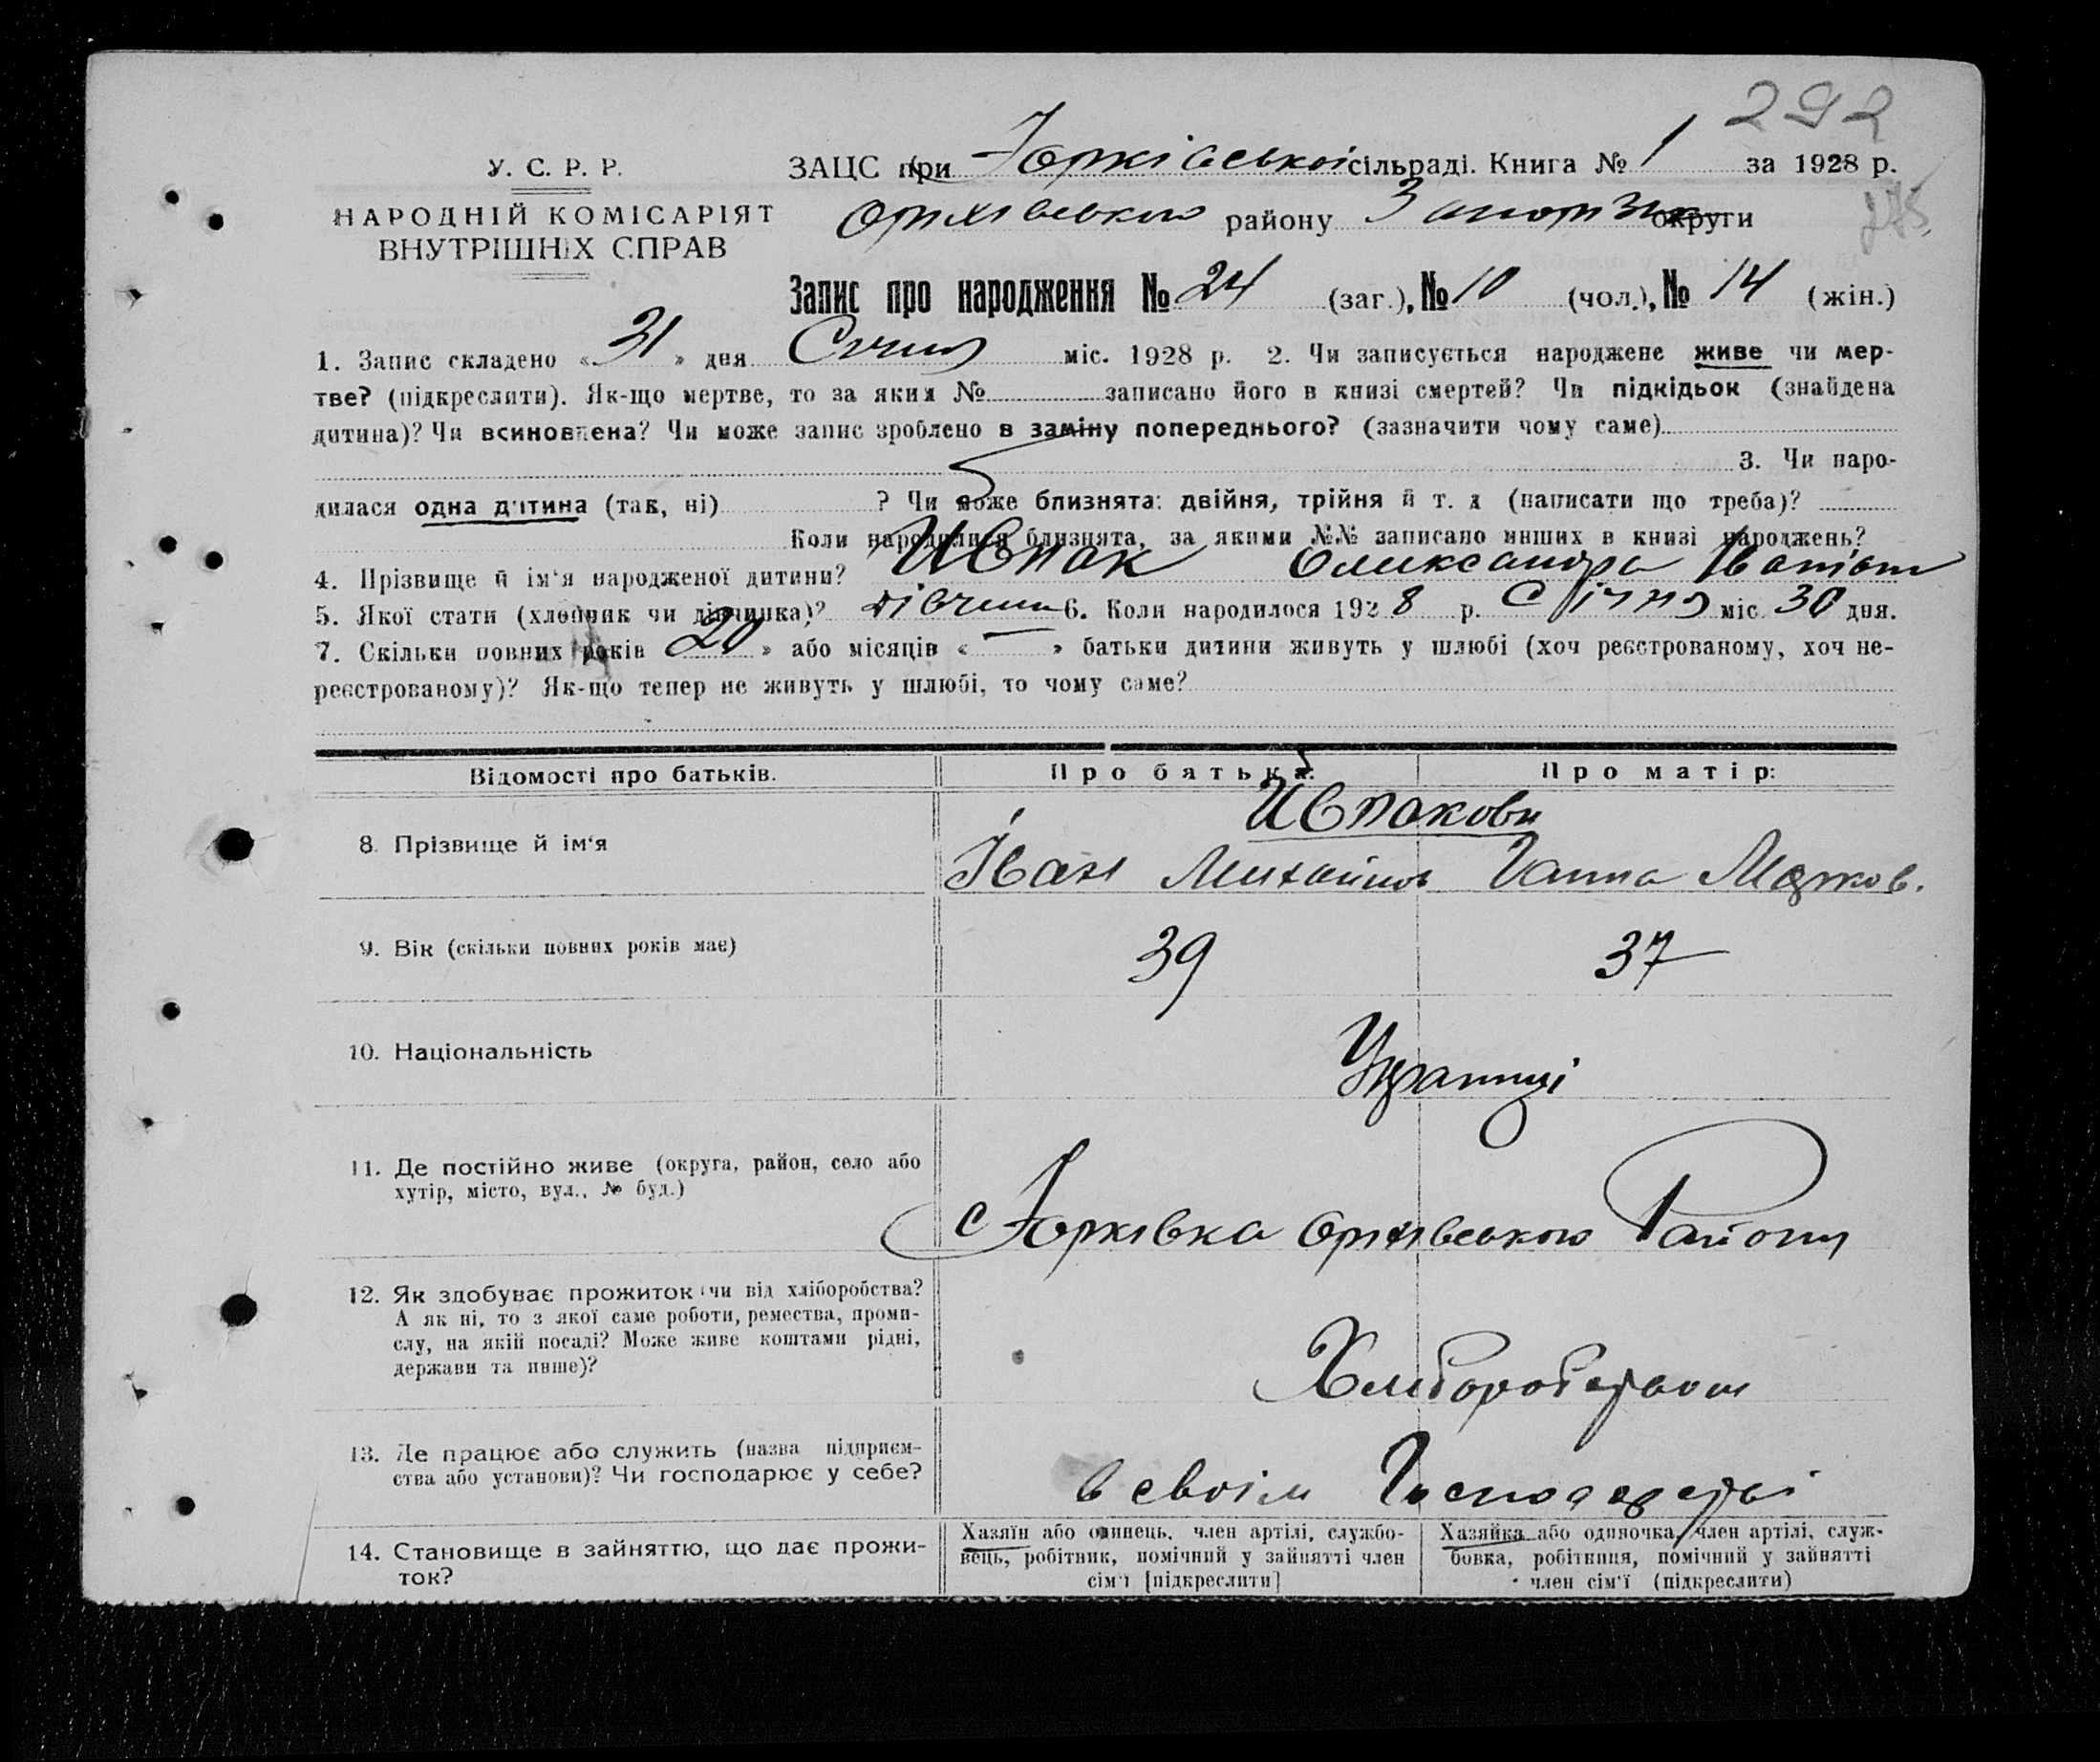 292
У. С. Р. Р.
НАРОДНІЙ КОМІСАРІЯТ
ВНУТРІШНІХ СПРАВ
ЗАЦС при Юрківськой сільраді. Книга № 1 за 1928 р.
Оріхівського району Запоріж округи
275
Запис про народження № 24 (заг.), № 10 (чол.), № 14 (жін.)
1. Запис складено « 31 » дня Січня міс. 1928 р. 2. Чи записується народжене живе чи мер-
тве? (підкреслити). Як-що мертве, то за яким № записано його в книзі смертей? Чи підкідьок (знайдена
дитина)? Чи всиновлена? Чи може запис зроблено в заміну попереднього? (зазначити чому саме)
3. Чи наро-
дилася одна дитина (так, ні) ? Чи може близнята: двійня, трійня й т. д (написати що треба)?
Коли народилися близнята, за якими №№ записано инших в книзі народжень?
4. Прізвище й ім'я народженої дитини? Ивпак Олександра Іванівн
5. Якої стати (хлопчик чи дівчинка)? дівчина 6. Коли народилося 1928 р. Січня міс. 30 дня.
7. Скільки повних років « 20 » або місяців « — » батьки дитини живуть у шлюбі (хоч реєстрованому, хоч не-
реєстрованому)? Як-що тепер не живуть у шлюбі, то чому саме?
Відомості про батьків. Про батька: Про матір:
8. Прізвище й ім'я
Ивпакови
Іван Михайлов Ганна Марков.
9. Вік (скільки повних років має) 39 37
10. Національність Українці
11. Де постійно живе (округа, район, село або
хутір, місто, вул., № буд.)
с Юрківка Оріхівського Району
12. Як здобуває прожиток: чи від хліборобства?
А як ні, то з якої саме роботи, ремества, проми-
слу, на якій посаді? Може живе коштами рідні,
держави та инше)?
Хлиборобством
13. Де працює або служить (назва підприєм-
ства або установи)? Чи господарює у себе?
в своїм Господарстві
14. Становище в зайняттю, що дає прожи-
ток?
Хазяїн або одинець, член артілі, службо-
вець, робітник, помічний у зайнятті член
сім'ї [підкреслити]
Хазяйка або одиночка, член артілі, служ-
бовка, робітниця, помічний у зайнятті
член сім'ї (підкреслити)